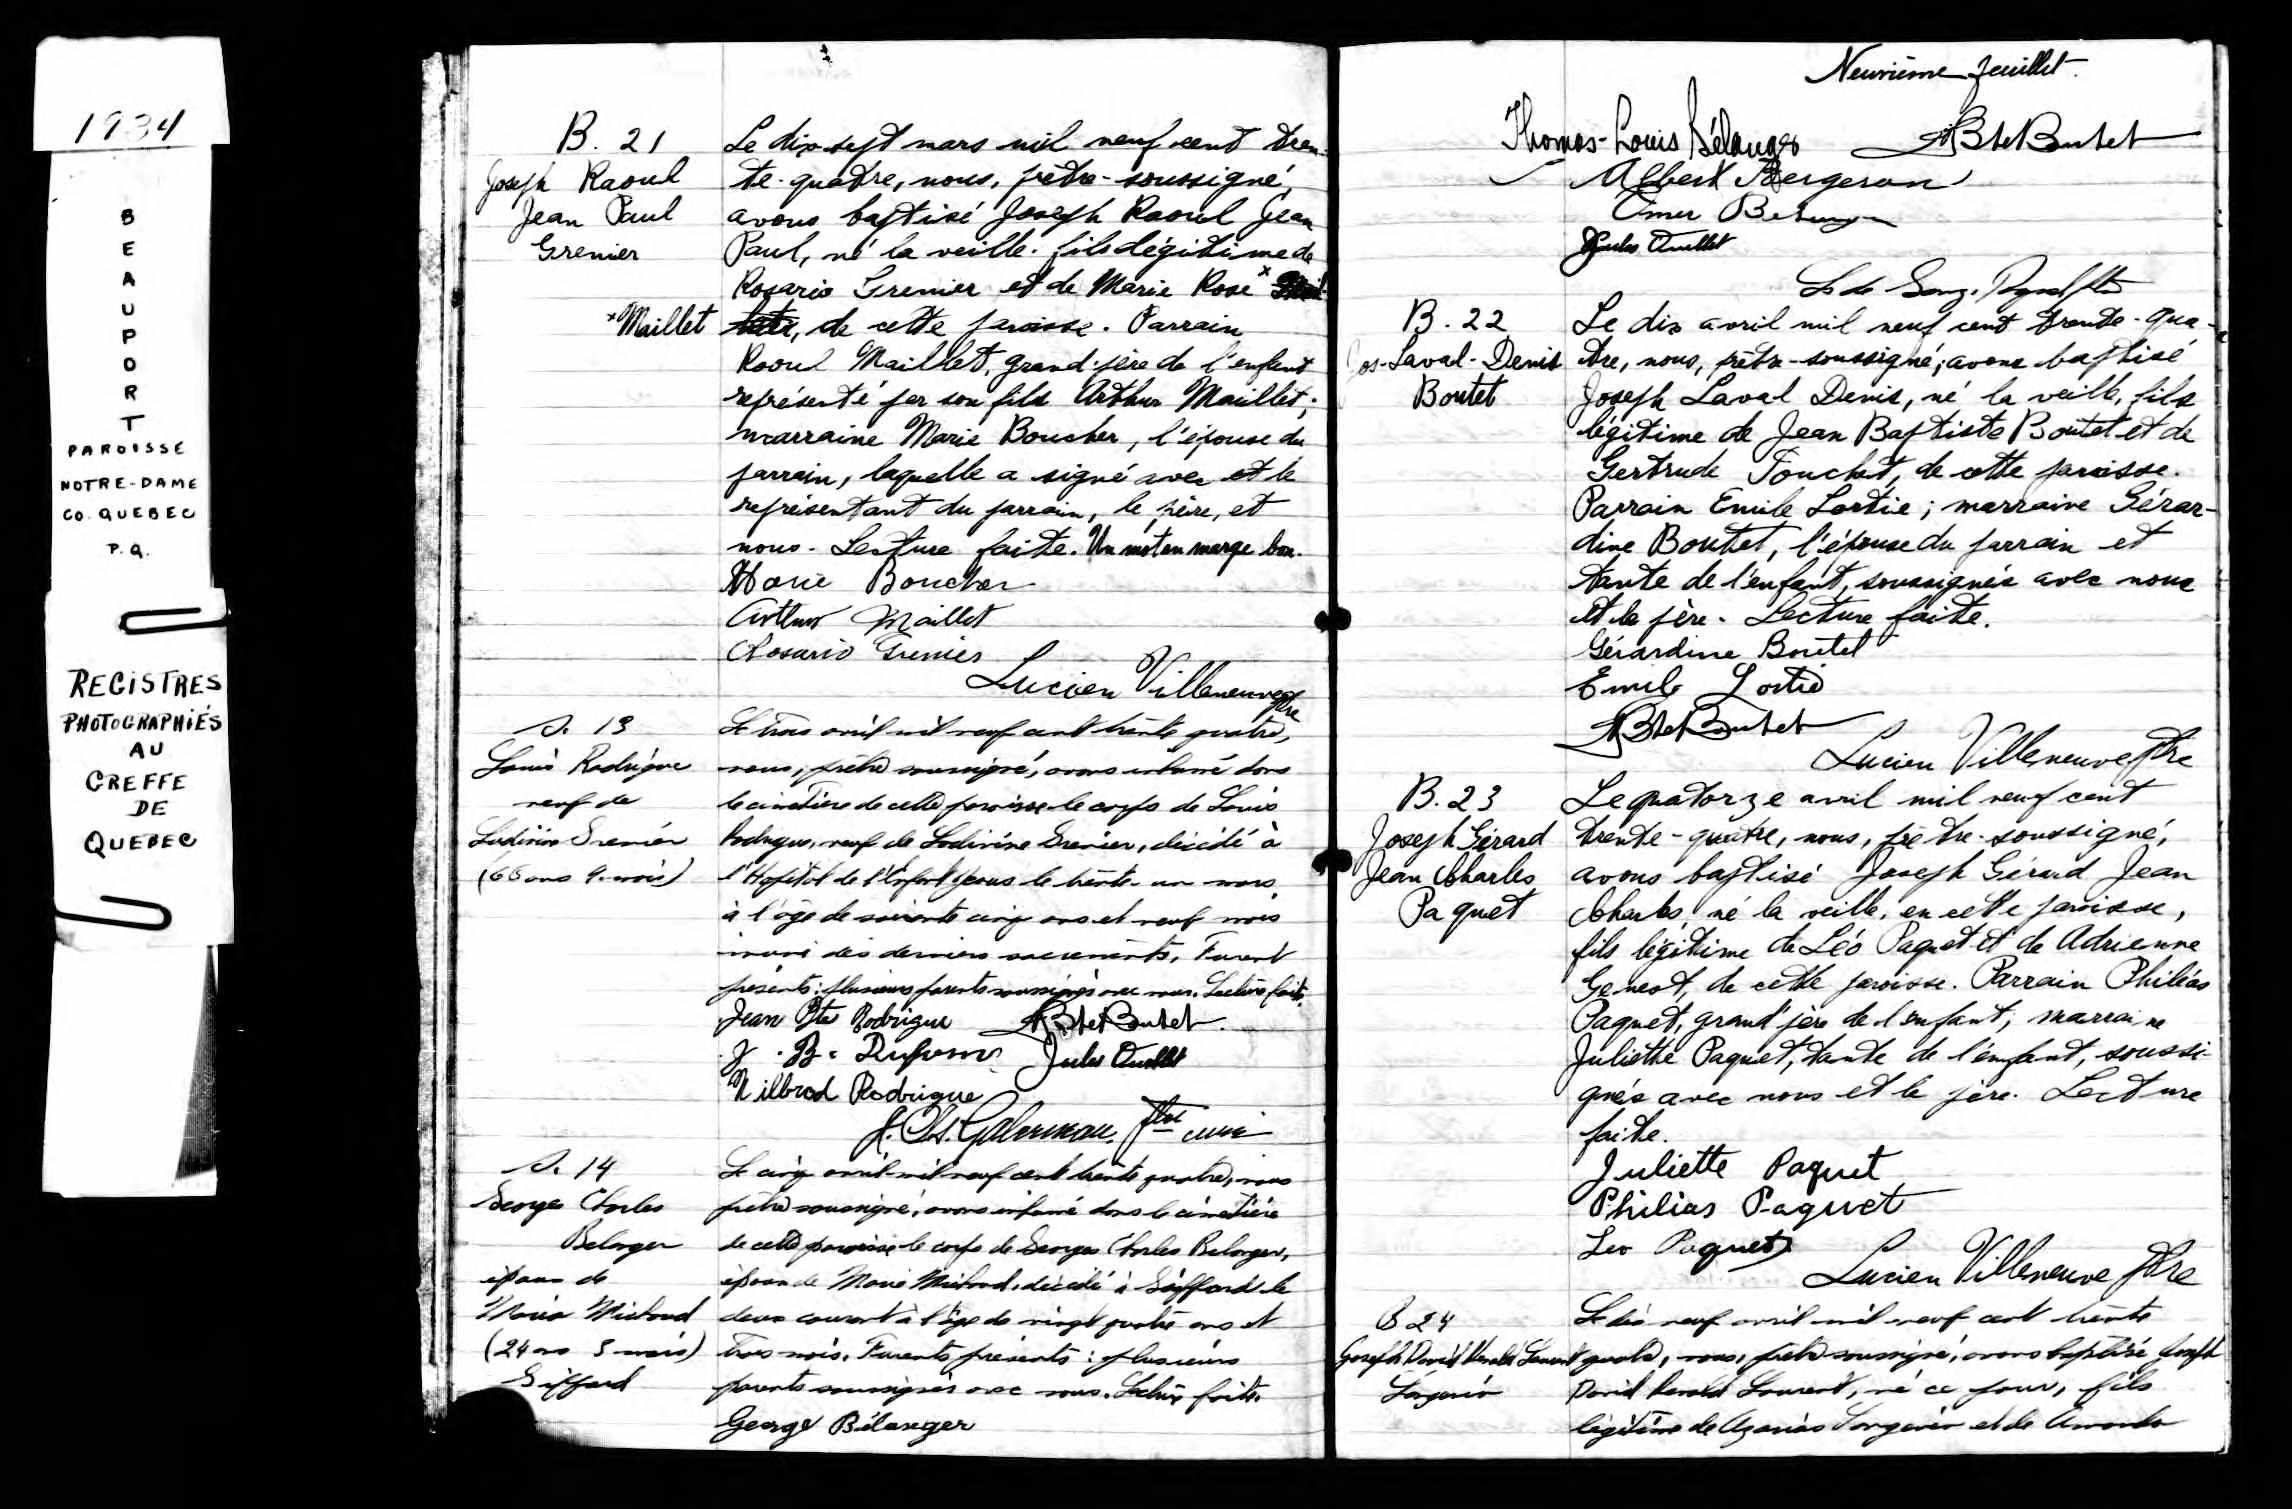 1934
B
E
A
U
P
O
R
T
PAROISSE
NOTRE-DAME
CO. QUEBEC
P.Q.
REGISTRES
PHOTOGRAPHIÉS
AU
GREFFE
DE
QUEBEC
B. 21
Joseph Raoul
Jean Paul
Grenier
x Maillet
Le dix-sept mars mil neuf cent tren-
te-quatre, nous, prêtre-soussigné,
avons baptisé Joseph Raoul Jean
Paul, né la veille, fils légitime de
Rosario Grenier et de Marie Rose x
de cette paroisse. Parrain
Raoul Maillet, grand-père de l'enfant
représenté par son fils Arthur Maillet;
marraine Marie Boucher, l'épouse du
parrain, laquelle a signé avec et le
représentant du parrain, le père, et
nous. Lecture faite. Un mot en marge bon.
Marie Boucher
Arthur Maillet
Rosario Grenier
Lucien Villeneuve ptre
S. 13
Louis Rodrigue
veuf de
Grenier
(65 ans 9 mois)
Le trois avril mil neuf cent trente quatre,
nous, prêtre soussigné, avons inhumé dans
le cimetière de cette paroisse le corps de Louis
Rodrigue, veuf de Grenier, décédé à
l'Hôpital de l'Enfant Jésus le trente-un mars,
à l'âge de soixante cinq ans et neuf mois
muni des derniers sacrements. Furent
présents: plusieurs parents soussignés avec nous. Lecture faite.
Jean Bte Rodrigue JBteBoutet
J. B. Jules Ouellet
Nilbrod Rodrigue
ptre curé
S. 14
Georges Charles
Belanger
époux de
Maria Michaud
(24 ans 3 mois)
Giffard
Le cinq avril mil neuf cent trente quatre, nous
prêtre soussigné, avons inhumé dans le cimetière
de cette paroisse le corps de Georges Charles Belanger,
époux de Maria Michaud, décédé à Giffard le
deux courant à l'âge de vingt quatre ans et
trois mois. Furent présents: plusieurs
parents soussignés avec nous. Lecture faite.
George Bélanger
Neuvième feuillet.
Thomas-Louis Bélanger JBteBoutet
Albert Bergeron
Omer
Jules Ouellet
B. 22
Jos-Laval-Denis
Boutet
Le dix avril mil neuf cent trente-qua-
tre, nous, prêtre-soussigné, avons baptisé
Joseph Laval Denis, né la veille, fils
légitime de Jean Baptiste Boutet et de
Gertrude Touchet, de cette paroisse.
Parrain Emile Lortie; marraine Gérar-
dine Boutet, l'épouse du parrain et
tante de l'enfant, soussignés avec nous
et le père. Lecture faite.
Gérardine Boutet
Emile Lortie
JBteBoutet
Lucien Villeneuve Ptre
B. 23
Joseph Gérard
Jean Charles
Paquet
Le quatorze avril mil neuf cent
trente-quatre, nous, prêtre-soussigné,
avons baptisé Joseph Gérard Jean
Charles, né la veille, en cette paroisse,
fils légitime de Léo Paquet et de Adrienne
Genest, de cette paroisse. Parrain Philéas
Paquet, grand'père de l'enfant; marraine
Juliette Paquet, tante de l'enfant, soussi-
gnés avec nous et le père. Lecture
faite.
Juliette Paquet
Philias Paquet
Leo Paquet
Lucien Villeneuve Ptre
B 24
Joseph David Laurent
Le dix neuf avril mil neuf cent trente
quatre, nous, prêtre soussigné, avons baptisé Joseph
David Laurent, né ce jour, fils
légitime de Azarias et de